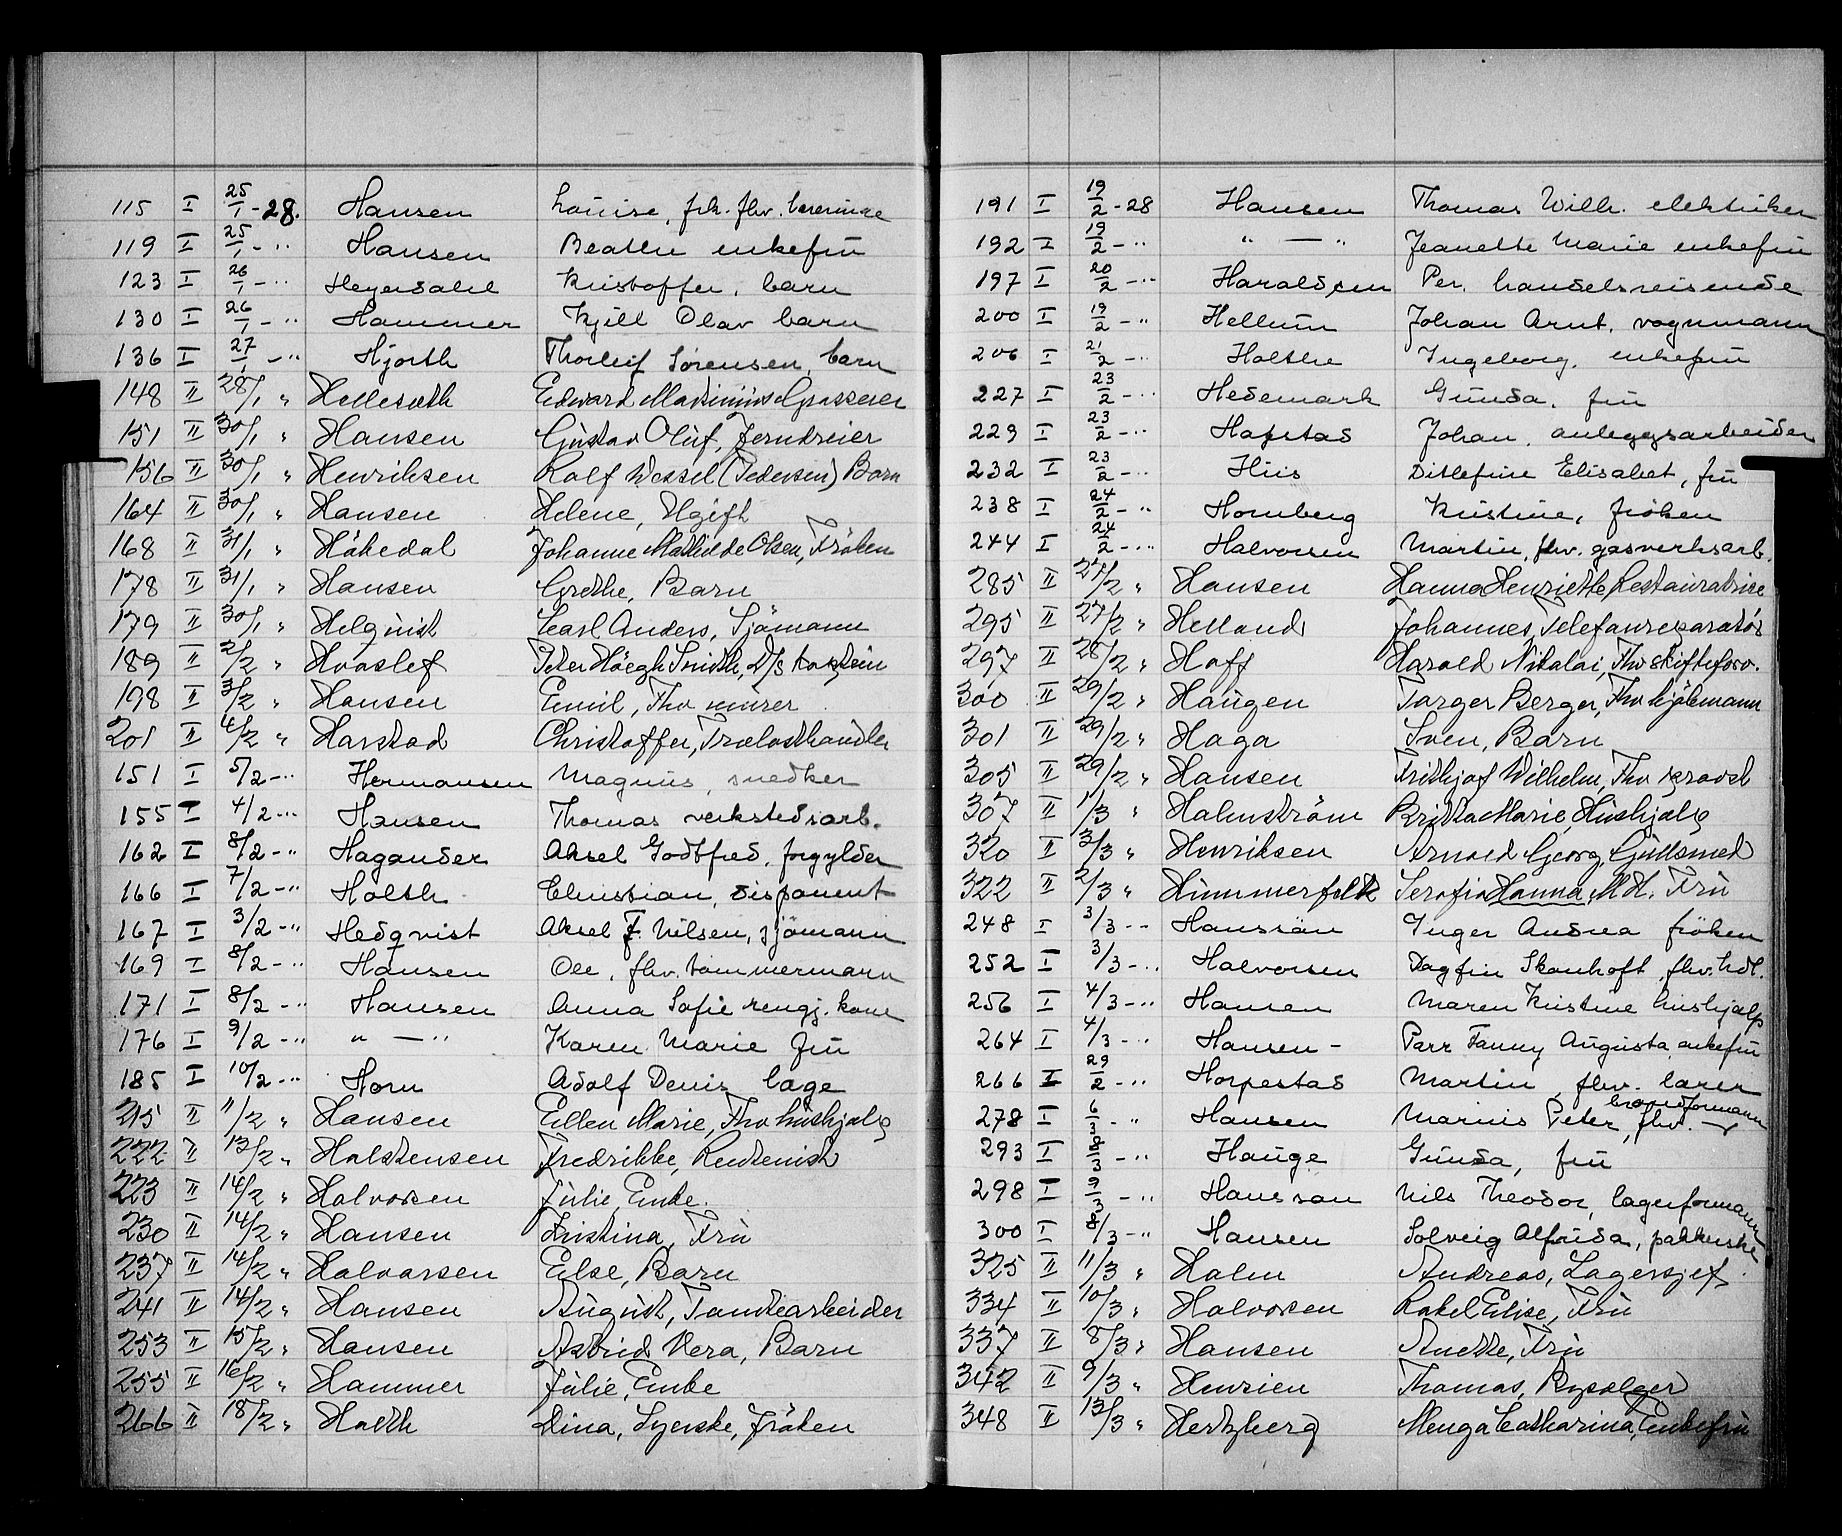 115 I 25/1 - 28. Hansen Louise, frk. fhv. lærerinne
119 I 25/1 - " Hansen Beathe enkefru
123 I 26/1 - " Heyerdahl Kristoffer, barn
130 I 26/1 - " Hammer Kjell Olav barn
136 I 27/1 - " Hjorth Thorleif Sørensen, barn
148 II 28/1 " Hellesæth Edward
151 II 30/1 " Hansen Gustav Oluf, Jerndreier
156 II 30/1 " Henriksen Rolf Wessel (Pedersen) Barn
164 II 30/1 " Hansen Helene, Ugift
168 II 31/1 " Håkedal Johanne Mathilde Olsen, Frøken
178 II 31/1 " Hansen Grethe, Barn
179 II 30/1 " Helquist Carl Anders, Sjömann
189 II 2/2 " Hvoslef Peter Höegh Smith, D/s
198 II 3/2 " Hansen Emil, Fhv murer
201 II 4/2 " Harstad Christoffer, Trælasthandler
151 I 5/2 - " Hermansen Magnus, snedker
155 I 4/2 - " Hansen Thomas verkstedsarb.
162 I 8/2 - " Hagander Aksel Godtfred, forgylder
166 I 7/2 - " Holth Christian, disponent
167 I 3/2 - " Hedqvist Aksel F. Nilsen, sjömann
169 I 8/2 - " Hansen Ole, fhv. tømmermann
171 I 8/2 - " Hansen Anna Sofie rengj. kone
176 I 9/2 - " " — " Karen Marie fru
185 I 10/2 - " Horn Adolf Denis læge
215 II 11/2 " Hansen Ellen Marie, Fhv hushjælp
222 II 13/2 " Halstensen Fredrikke, Rentenist
223 II 14/2 " Halvorsen Julie, Enke.
230 II 14/2 " Hansen Kristina, Fru
237 II 14/2 " Halvorsen Else, Barn
241 II 14/2 " Hansen August, Tomtearbeider
253 II 15/2 " Hansen Astrid Vera, Barn
255 II 16/2 " Hammer Julie, Enke
266 II 18/2 " Holth Dina, Syerske, Frøken
191 I 19/2 - 28 Hansen Thomas Wilh. elektriker
192 I 19/2 - " " — " Jeanette Marie enkefru
197 I 20/2 - " Haraldsen Per, handelsreisende
200 I 19/2 - " Hellum Johan Arnt, vognmann
206 I 21/2 - " Holthe Ingeborg, enkefru
227 I 23/2 - " Hedemark Gunda, fru
229 I 23/2 - " Hafstad Johan, anleggsarbeider
232 I 23/2 - " Hiis Ditlefine Elisabet, fru
238 I 24/2 - " Hornberg Kristine, frøken
244 I 24/2 - " Halvorsen Martin, fhv. gasverksarb.
285 II 27/2 " Hansen Hanna Henriette, Restauratrise
295 II 27/2 " Helland Johannes, Telefonreparatør
297 II 28/2 " Hoff Harald Nikolai, Fhv skifteforv.
300 II 29/2 " Haugen Torger Berger, Fhv kjøbmann
301 II 29/2 " Haga Sven, Barn
305 II 29/2 " Hansen Frithjof Wilhelm, Fhv
307 II 1/3 " Holmstrøm Britta Marie, Hushjælp
320 II 3/3 " Henriksen Arnold Georg, Gullsmed
322 II 2/3 " Himmerfolk Serafia Hanna, M.H. Fru
248 I 3/3 - - Hanssän Inger Andrea frøken
252 I 3/3 - " Halvorsen Dagfin Skauhoft, fhv. hdl.
256 I 4/3 - " Hansen Maren Kristine hushjalp
264 I 4/3 - " Hansen - Parr Fanny Augusta enkefru
266 I 29/2 - " Horpestad Martin, fhv. lærer
278 I 6/3 - " Hansen Marius Peter, fhv. brandformann
293 I 8/3 - " Hauge Gunda, fru
298 I 9/3 - " Hansson Nils Theodor, lagerformann
300 I 8/3 - " Hansen Solveig Alfrida, pakkerske
325 II 11/3 " Holm Andreas, Lagersjef.
334 II 10/3 " Halvorsen Rakel Elise, Fru
337 II 8/3 " Hansen Anette, Fru
342 II 9/3 " Henrien Thomas, Bypælger
348 II 13/3 " Hertzberg Menga Catharina, Enkefru